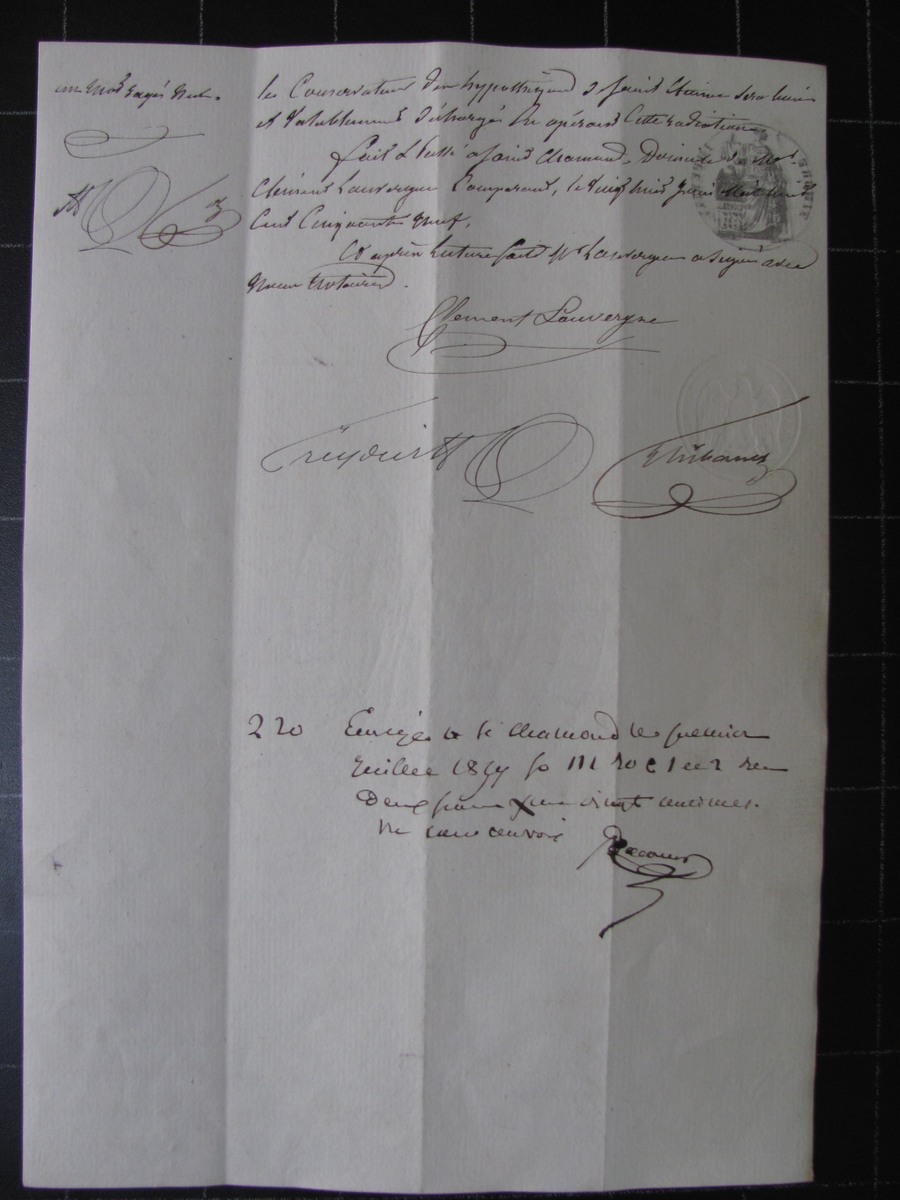 un mot rayé nul.
le Conservateur des hypothèques à Saint Etienne sera bien
et valablement déchargé en opérant cette radiation.
fait et passé à Saint chamond, Domicile de Mr.
Clément Lauvergne Comparant, le vingt huit Juin Mil huit
Cent Cinquante neuf,
Et après lecture faite Mr Lauvergne a signé avec
Nous Notaires.
Clement Lauvergne
2 20 Enregé à St chamond le premier
Juillet 1859 fo 111 ro c 1 et 2 reçu
Deux francs vingt centimes.